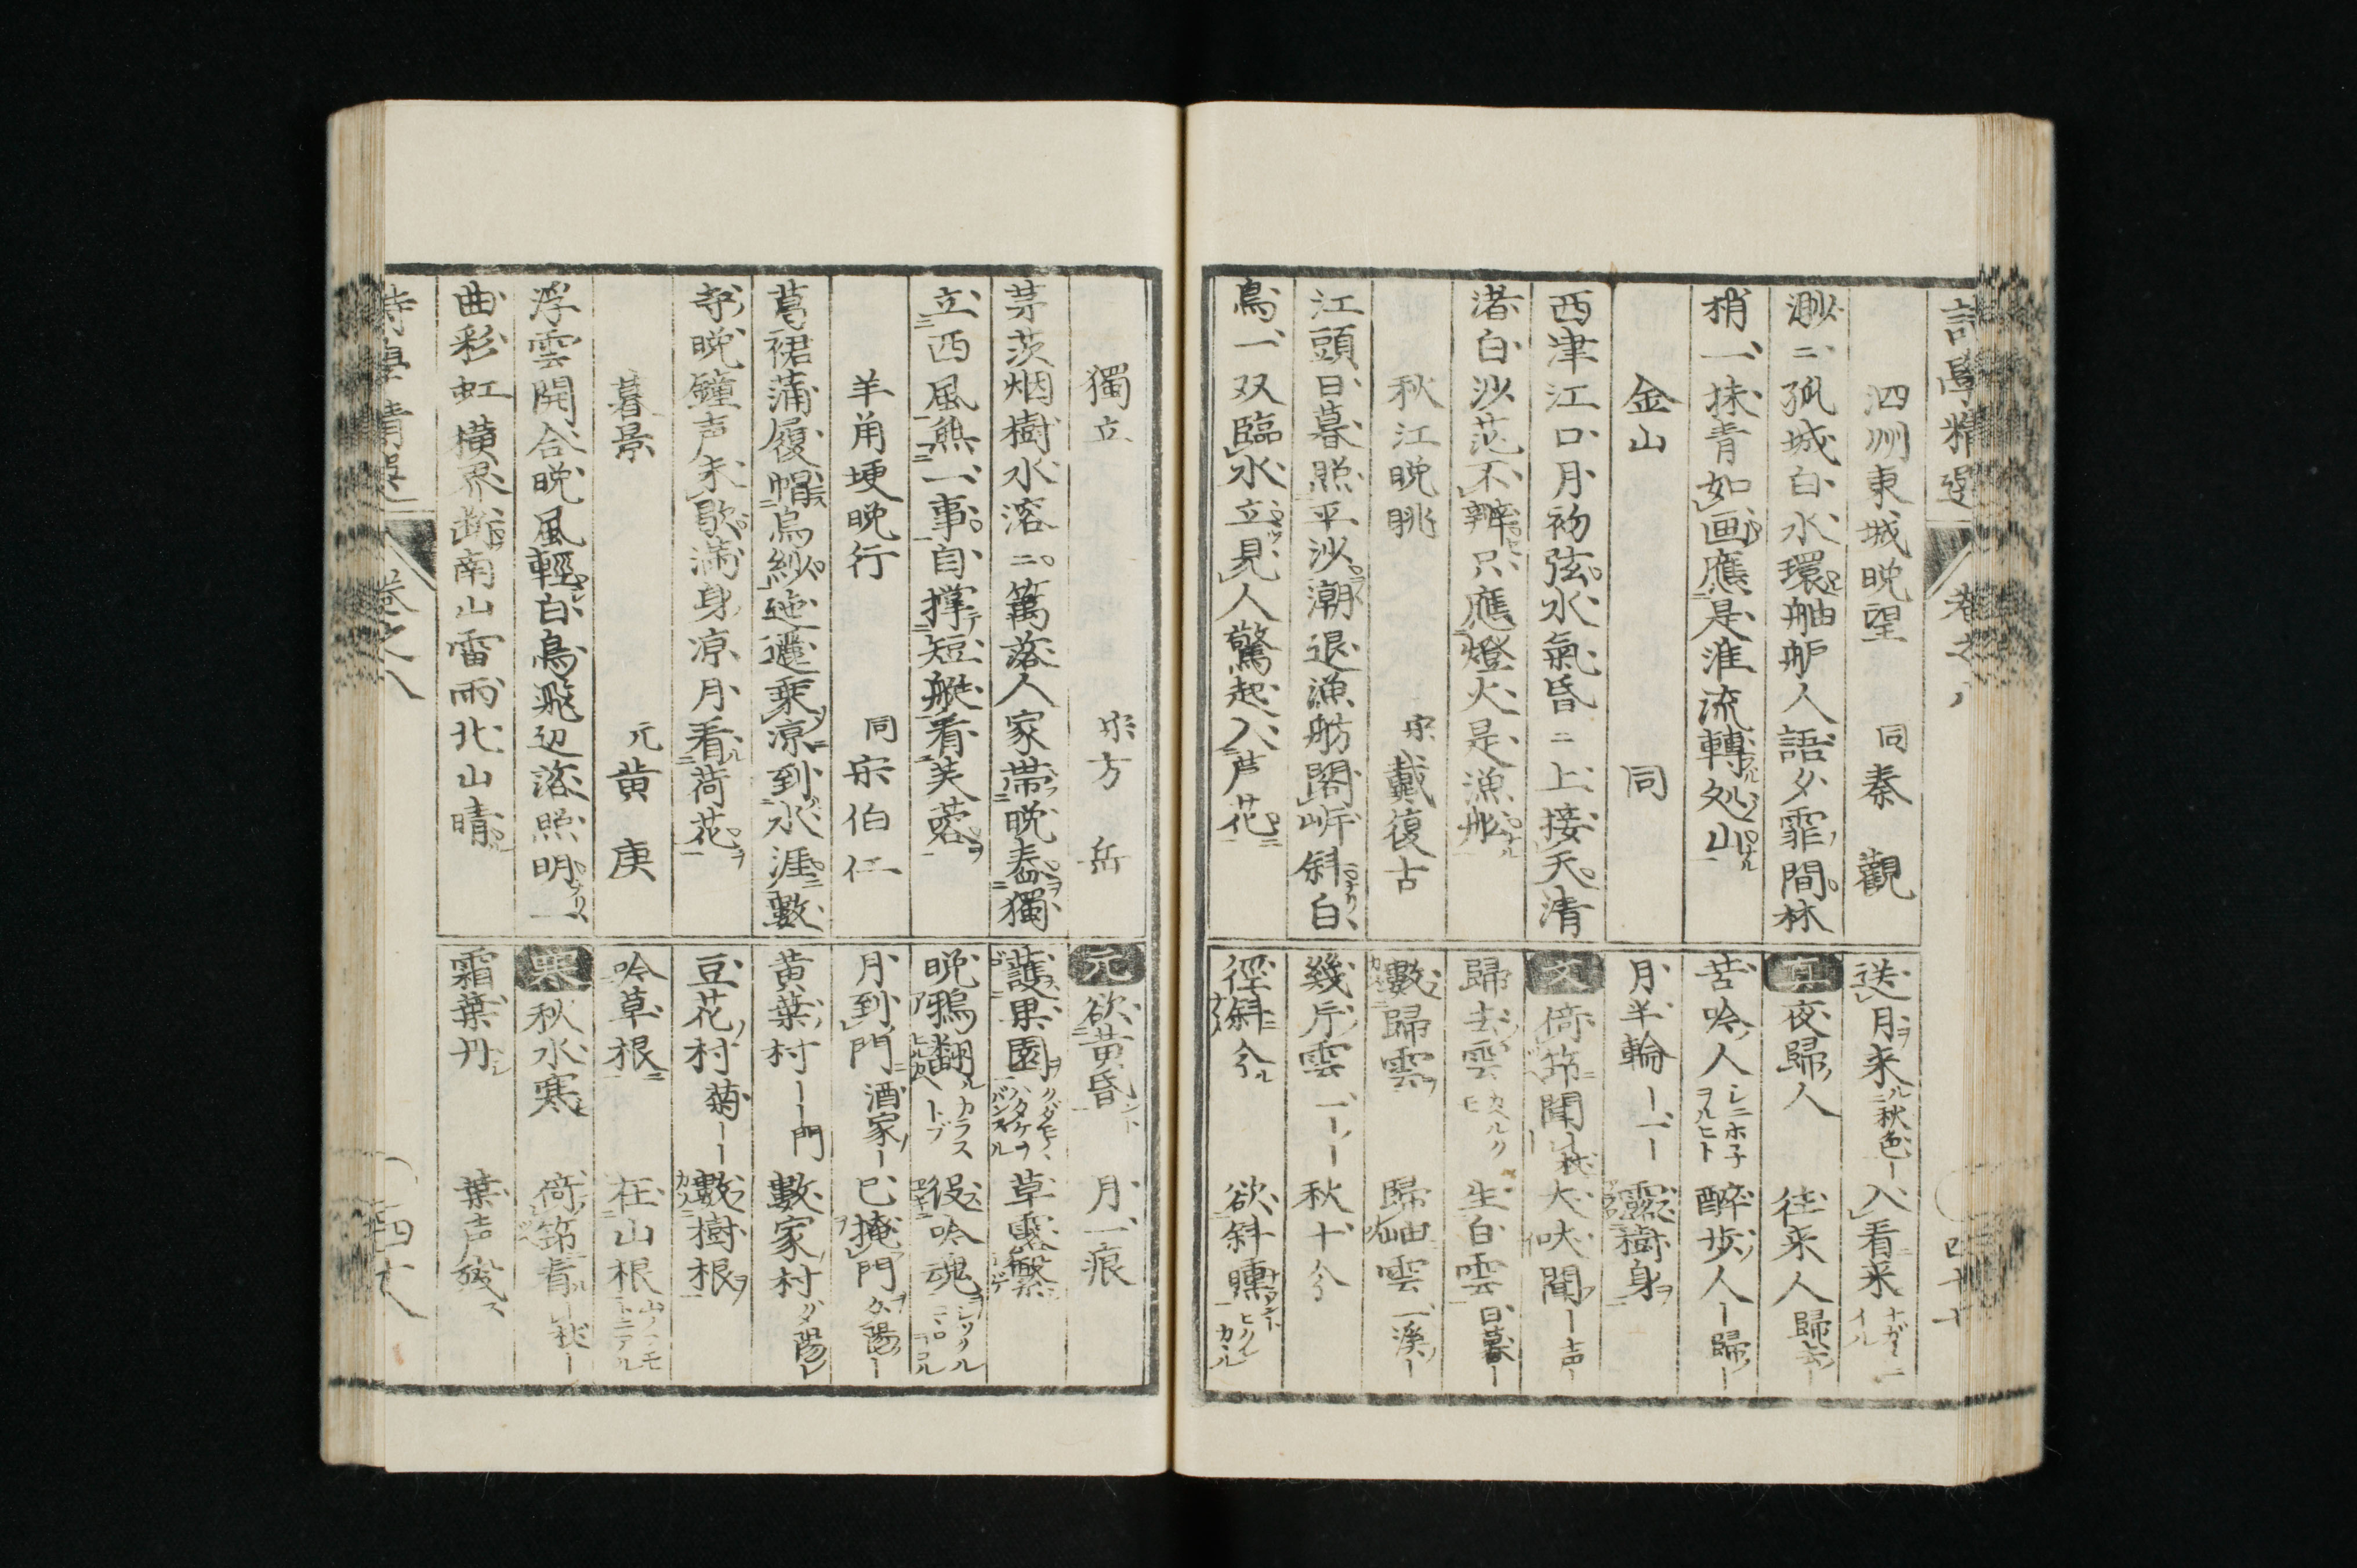 詩學精選 卷之八
泗州東城晩望 同秦觀
渺二孤城白水環舳舻人語夕霏間林
梢一抹青如画應是淮流轉処山
金山 同
西津江口月初弦水氣昏二上接天清
渚白沙茫不辨只應燈火是漁船
秋江晩眺 宋戴復古
江頭日暮照平沙潮退漁舫閣岸斜白
鳥一双臨水立見人驚起入芦花
送月来秋色ー入看来
真夜歸人 往来人歸去ー
苦吟人 醉歩人ー歸ー
月半輪ー一ー 露樹身
文倚筇聞 犬吠聞ー声ー
歸去雲 生白雲日暮ー
數歸雲 歸岫雲一溪ー
幾片雲ーー 秋十分
徑斜分 欲斜曛
四十七
獨立 宋方岳
茅茨烟樹水溶二籬落人家帯晩舂獨
立西風無一事自撑短艇看芙蓉
羊角埂晩行 同宋伯仁
葛裙蒲履帽烏紗迤邐乗凉到水涯數
寺晩鐘声未歇満身凉月看荷花
暮景 元黄庚
浮雲開合晩風輕白鳥飛辺落照明一
曲彩虹横界断南山雷雨北山晴
元欲黄昏 月一痕
護果園 草露繁
晩鴉翻 役吟魂
月到門酒家ー 已掩門夕陽ー
黄葉村ーー門 數家村夕陽ー
豆花村菊ーー 數樹根
吟草根 在山根
寒秋水寒 倚筇看ー秋ー
霜葉丹 葉声残
詩學精選 卷之八 四十八